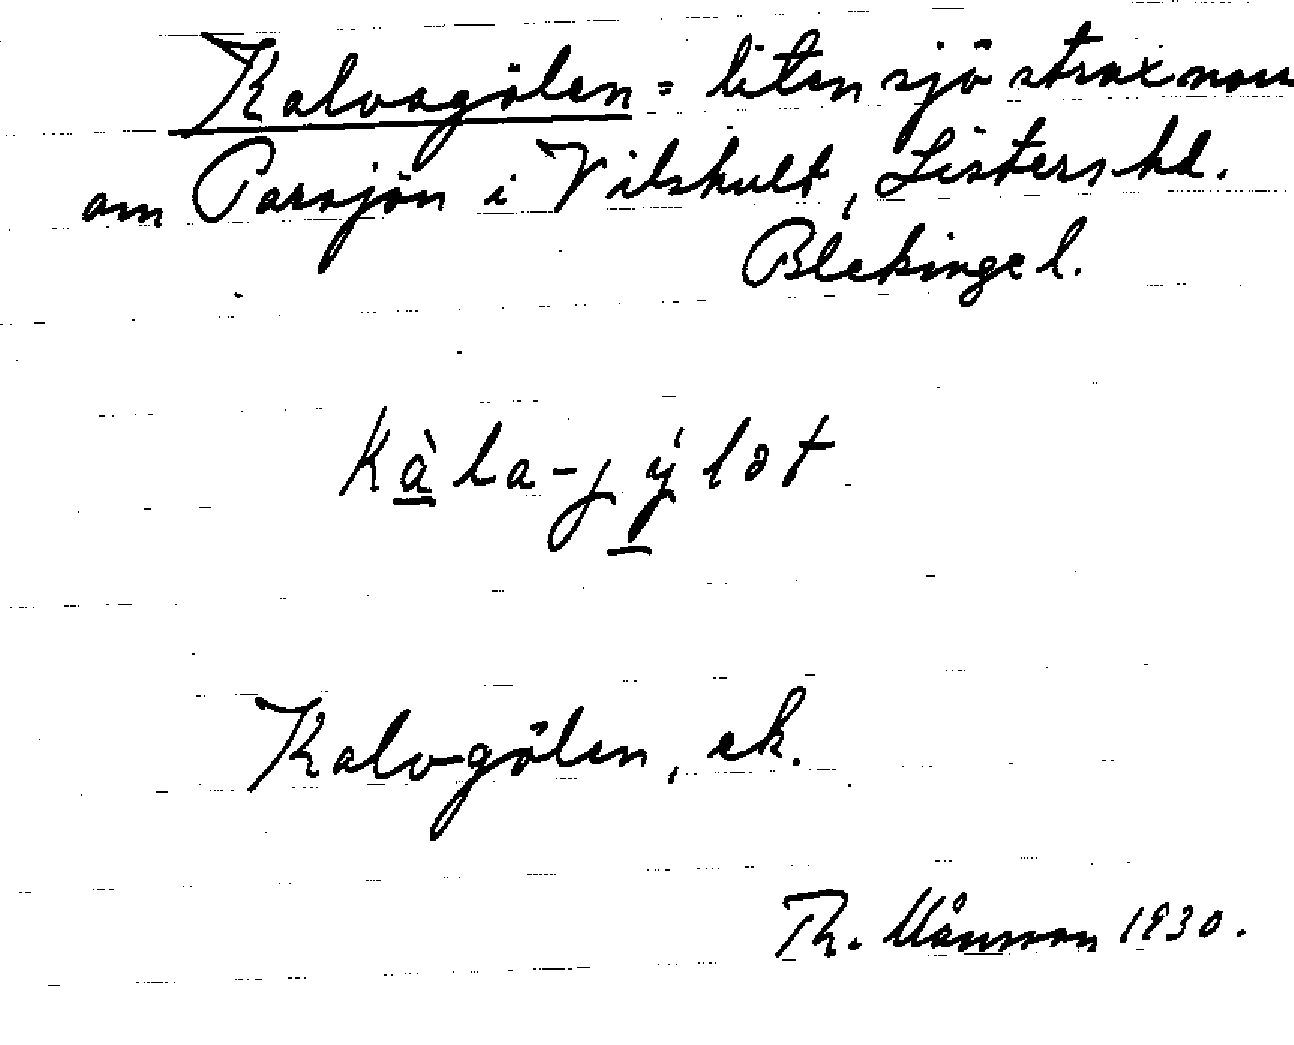 Kalvagölen = liten sjö strax norr
om Parsjön i Vilshult, Listers hd.
Blekinge l.
kàla-jýlət
Kalvgölen, ek.
Th. Månsson 1930.